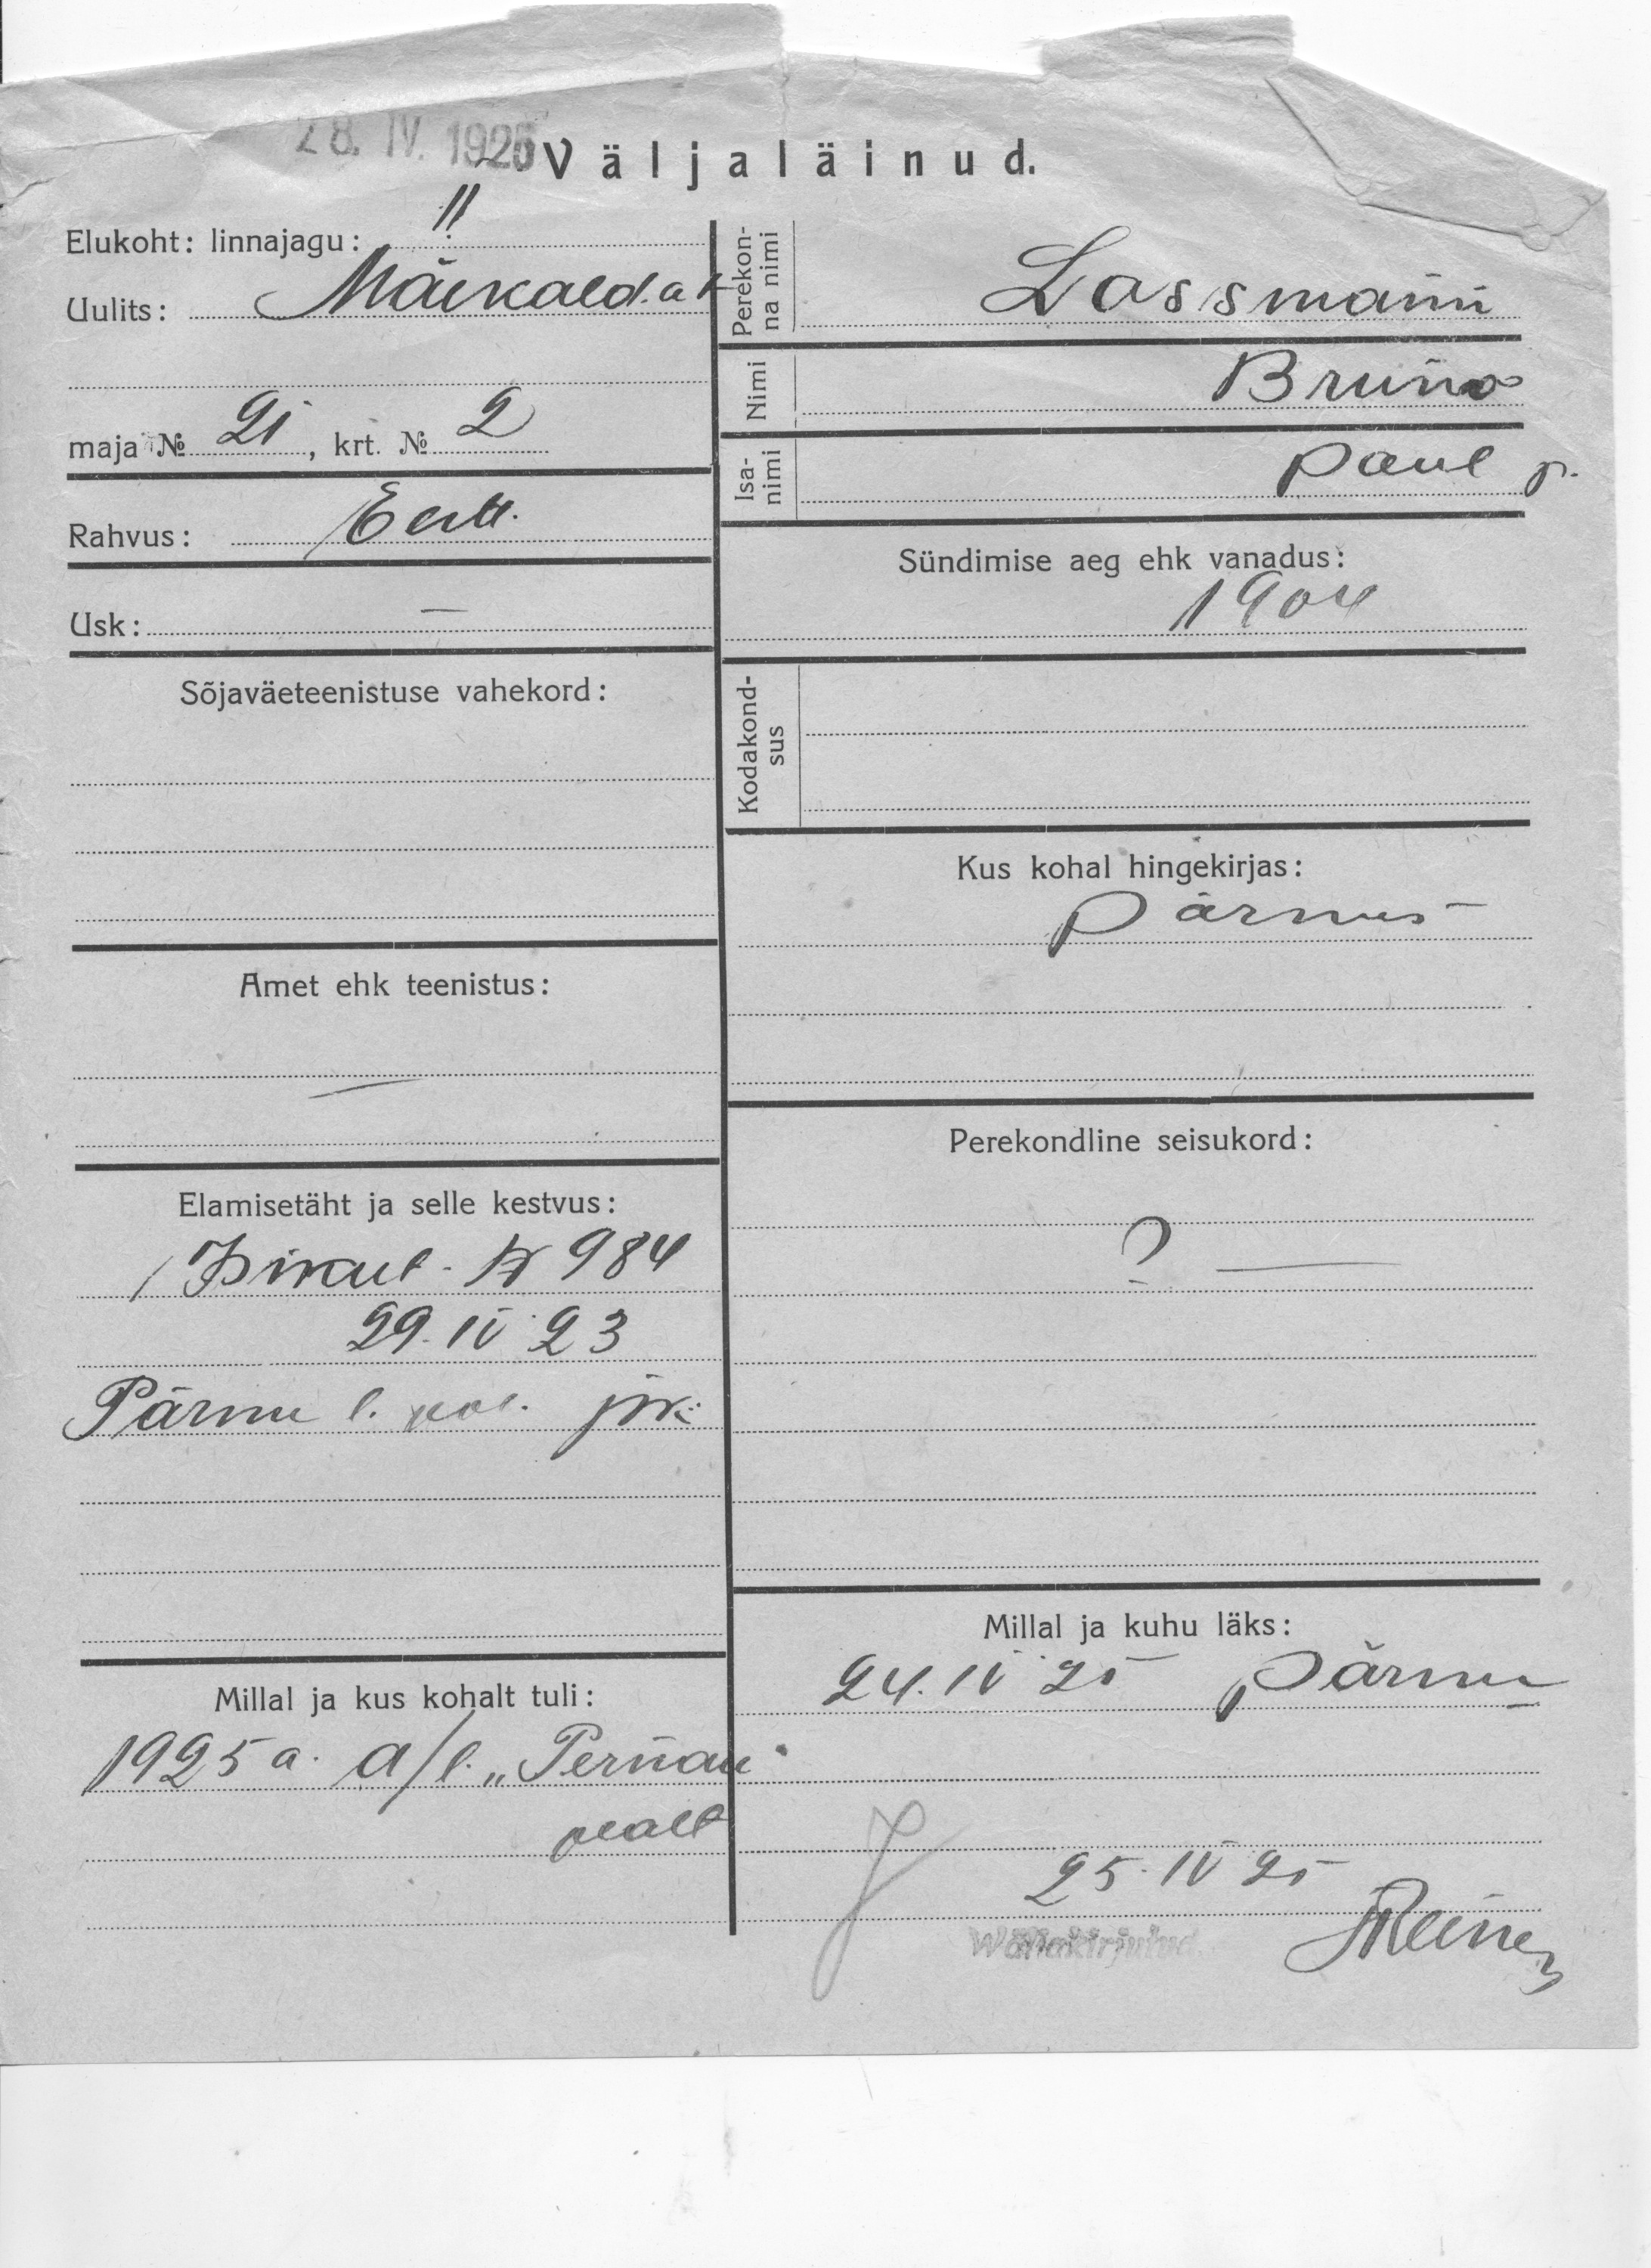 28. IV. 1925
Väljaläinud.
Elukoht: linnajagu: II
Uulits:
maja № 21, krt. № 2
Rahvus: Eestl.
Usk: —
Sõjaväeteenistuse vahekord:
Amet ehk teenistus:
—
Elamisetäht ja selle kestvus:
Isikut. № 984
29. IV 23
Pärnu l. pol. jsk.
Millal ja kus kohalt tuli:
1925 a. a/l. „Pernau"
pealt
Perekon-
na nimi
Lossmann
Nimi
Bruno
Isa-
nimi
Paul p.
Sündimise aeg ehk vanadus:
1904
Kodakond-
sus
Kus kohal hingekirjas:
Pärnus
Perekondline seisukord:
? —
Millal ja kuhu läks:
24. IV 25 Pärnu
25. IV 25
Wäljakirjutud.